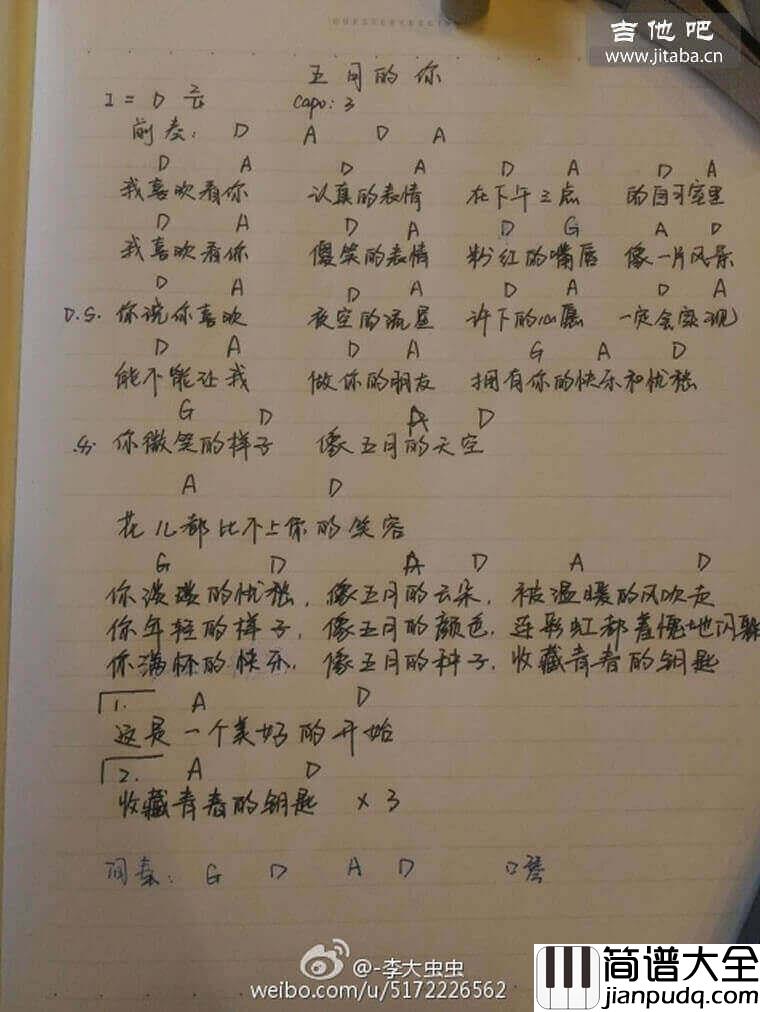 吉他吧
www.jitaba.cn
五月的你
1 = D Capo: 3
前奏: D A D A
D A D A D A D A
我喜欢看你 认真的表情 在下午三点 的自习室里
D A D A D G A D
我喜欢看你 傻笑的表情 粉红的嘴唇 像一片风景
D A D A D A D A
D.S. 你说你喜欢 夜空的流星 许下的心愿 一定会实现
D A D A G A D
能不能让我 做你的朋友 拥有你的快乐和忧愁
G D A D
你微笑的样子 像五月的天空
A D
花儿都比不上你的笑容
G D A D A D
你淡淡的忧愁, 像五月的云朵, 被温暖的风吹走
你年轻的样子, 像五月的颜色, 连彩虹都羞愧地闪躲
你满怀的快乐, 像五月的种子, 收藏青春的钥匙
1. A D
这是一个美好的开始
2. A D
收藏青春的钥匙 ×3
间奏: G D A D 口琴
@-李大虫虫
weibo.com/u/5172226562
简谱大全
jianpudq.com